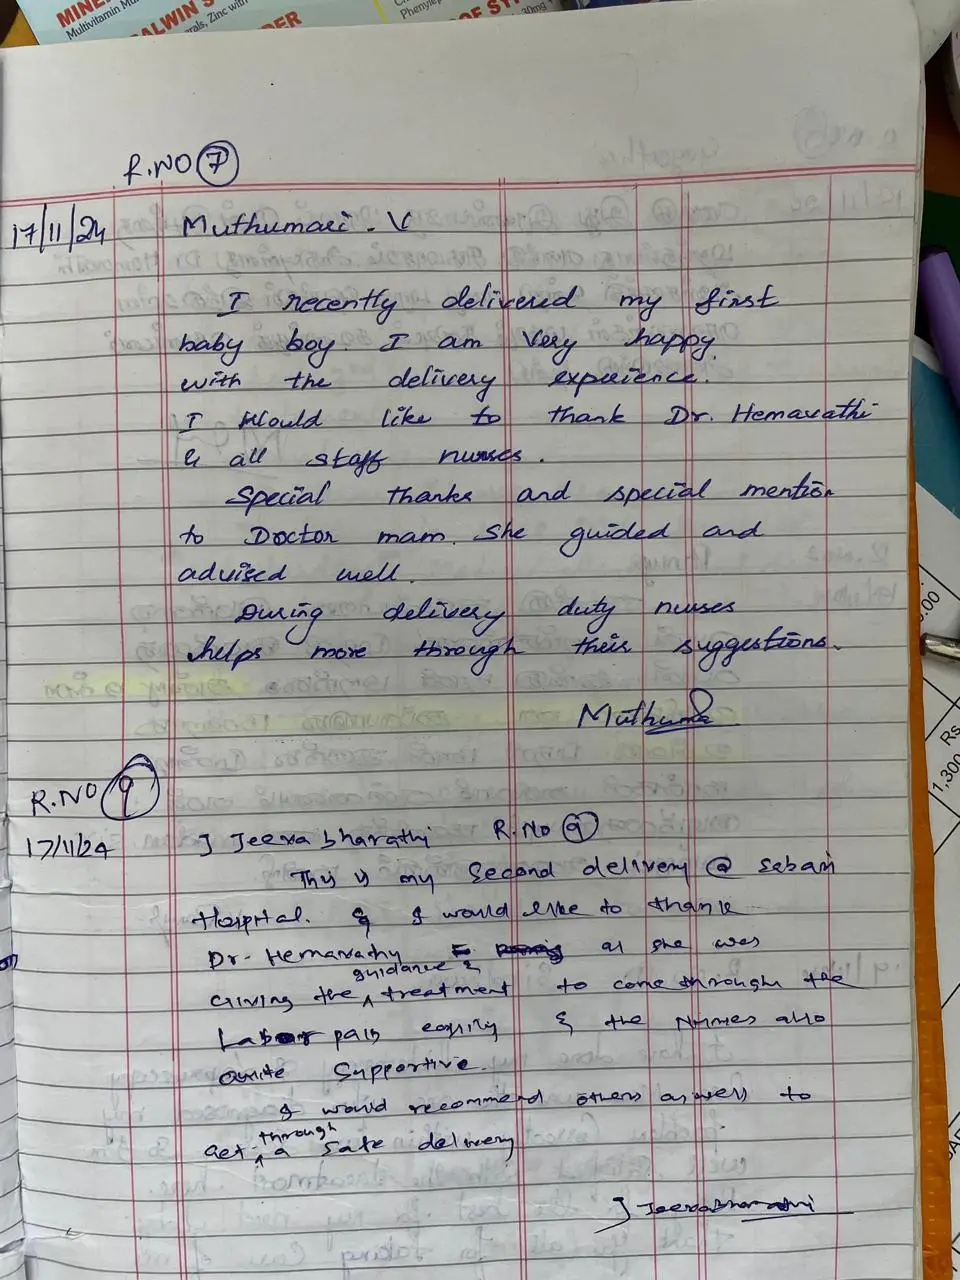 Multivitamin
Phenylep
R.NO 7
17/11/24 Muthumari . V
I recently delivered my first
baby boy. I am very happy
with the delivery experience.
I would like to thank Dr. Hemavathi
& all staff nurses.
Special thanks and special mention
to Doctor mam. She guided and
advised well.
During delivery duty nurses
helps more through their suggestions.
Muthuma
R.NO 9
17/11/24 J Jeeva bharathi R.No 9
This is my second delivery @ Sabari
Hospital. & I would like to thank
Dr. Hemavathy as she was
Giving the guidance & treatment to come through the
Labour pain easily & the Nurses also
Quite Supportive.
I would recommend others as well to
Get through a safe delivery
J JeevaBharathi
Rs
1,300